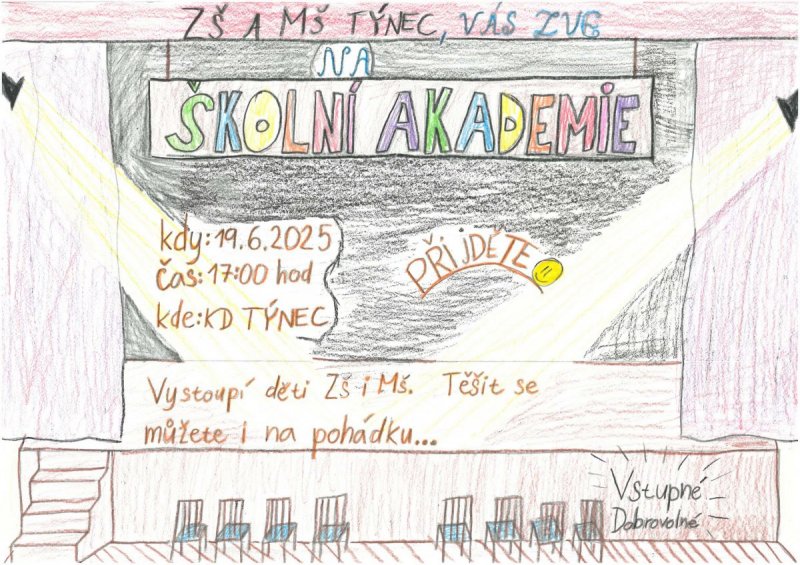 ZŠ A MŠ TÝNEC, VÁS ZVE
NA
ŠKOLNÍ AKADEMIE
kdy: 19.6.2025
čas: 17:00 hod
kde: KD TÝNEC
PŘIJDĚTE
Vystoupí děti ZŠ i MŠ. Těšit se
můžete i na pohádku...
Vstupné
Dobrovolné